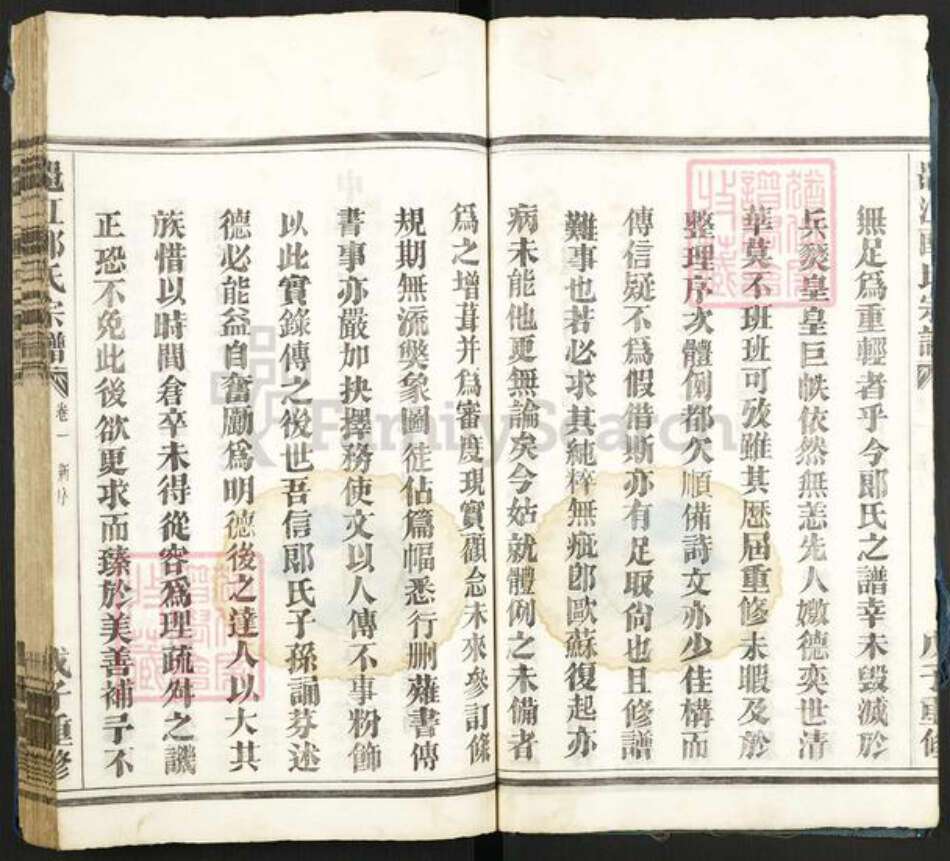 無足爲重輕者乎今郎氏之譜幸未毀滅於
兵燹皇皇巨帙依然無恙先人嫩德奕世清
華莫不班班可攷雖其歷屆重修未暇及於
整理序次體例都欠順備詩文亦少佳構而
傳信疑不爲假借斯亦有足取尙也且修譜
難事也若必求其純粹無疵郎歐蘇復起亦
病未能他更無論矣今姑就體例之未備者
爲之增葺并爲審度現實顧念未來參訂條
規期無流獘象圖徒佔篇幅悉行刪薙書傳
書事亦嚴加抉擇務使文以人傳不事粉飾
以此實錄傳之後世吾信郎氏子孫誦芬述
德必能益自奮勵爲明德後之達人以大其
族惜以時間倉卒未得從容爲理疏舛之譏
正恐不免此後欲更求而臻於美善補予不
江郎氏宗譜
卷一
新序
戊子重修
FamilySearch